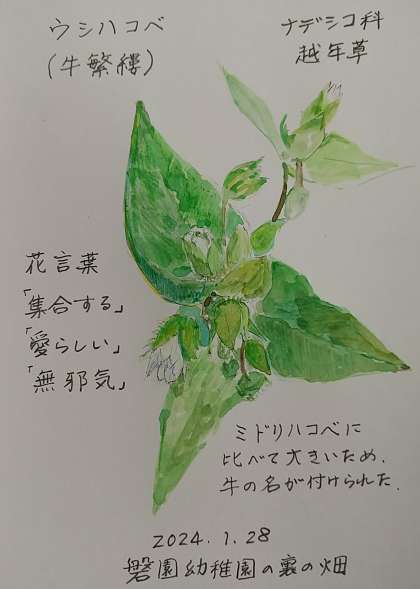 ウシハコベ
(牛繁縷)
ナデシコ科
越年草
花言葉
「集合する」
「愛らしい」
「無邪気」
ミドリハコベに
比べて大きいため、
牛の名が付けられた。
2024.1.28
磐園幼稚園の裏の畑